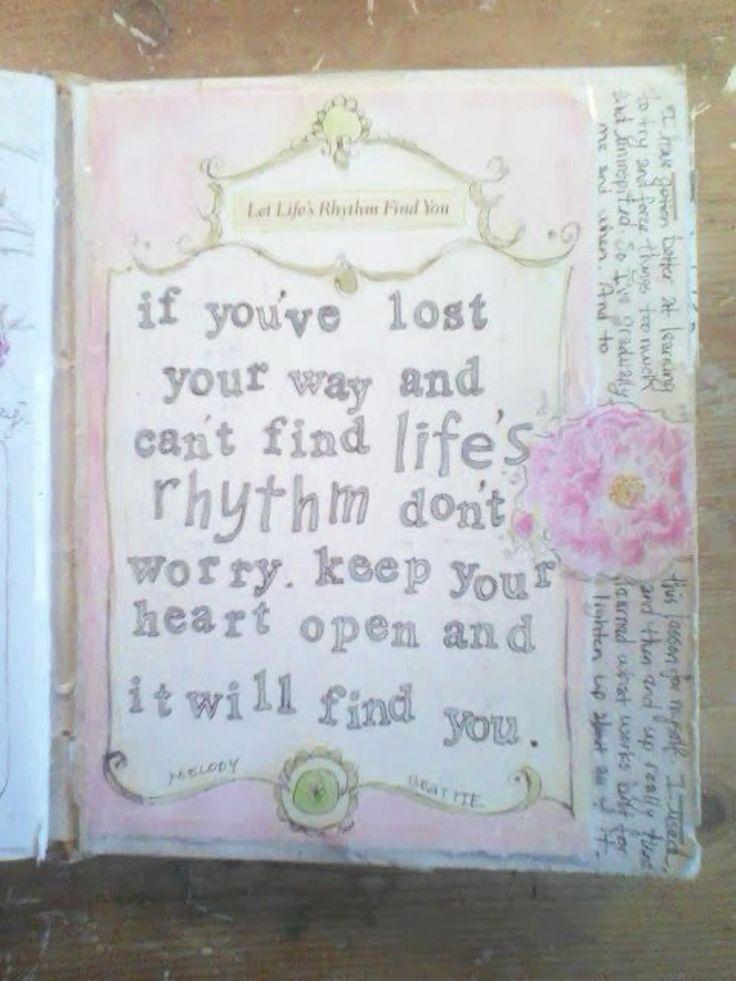 Let Life's Rhythm Find You
if you've lost
your way and
can't find life's
rhythm don't
worry. keep your
heart open and
it will find you.
MELODY BEATTIE
I have gotten better at learning this lesson for myself. I used
to try and force things too much and then end up really
and uninspired. So I've gradually learned what works best for
me and when. And to lighten up about all it.